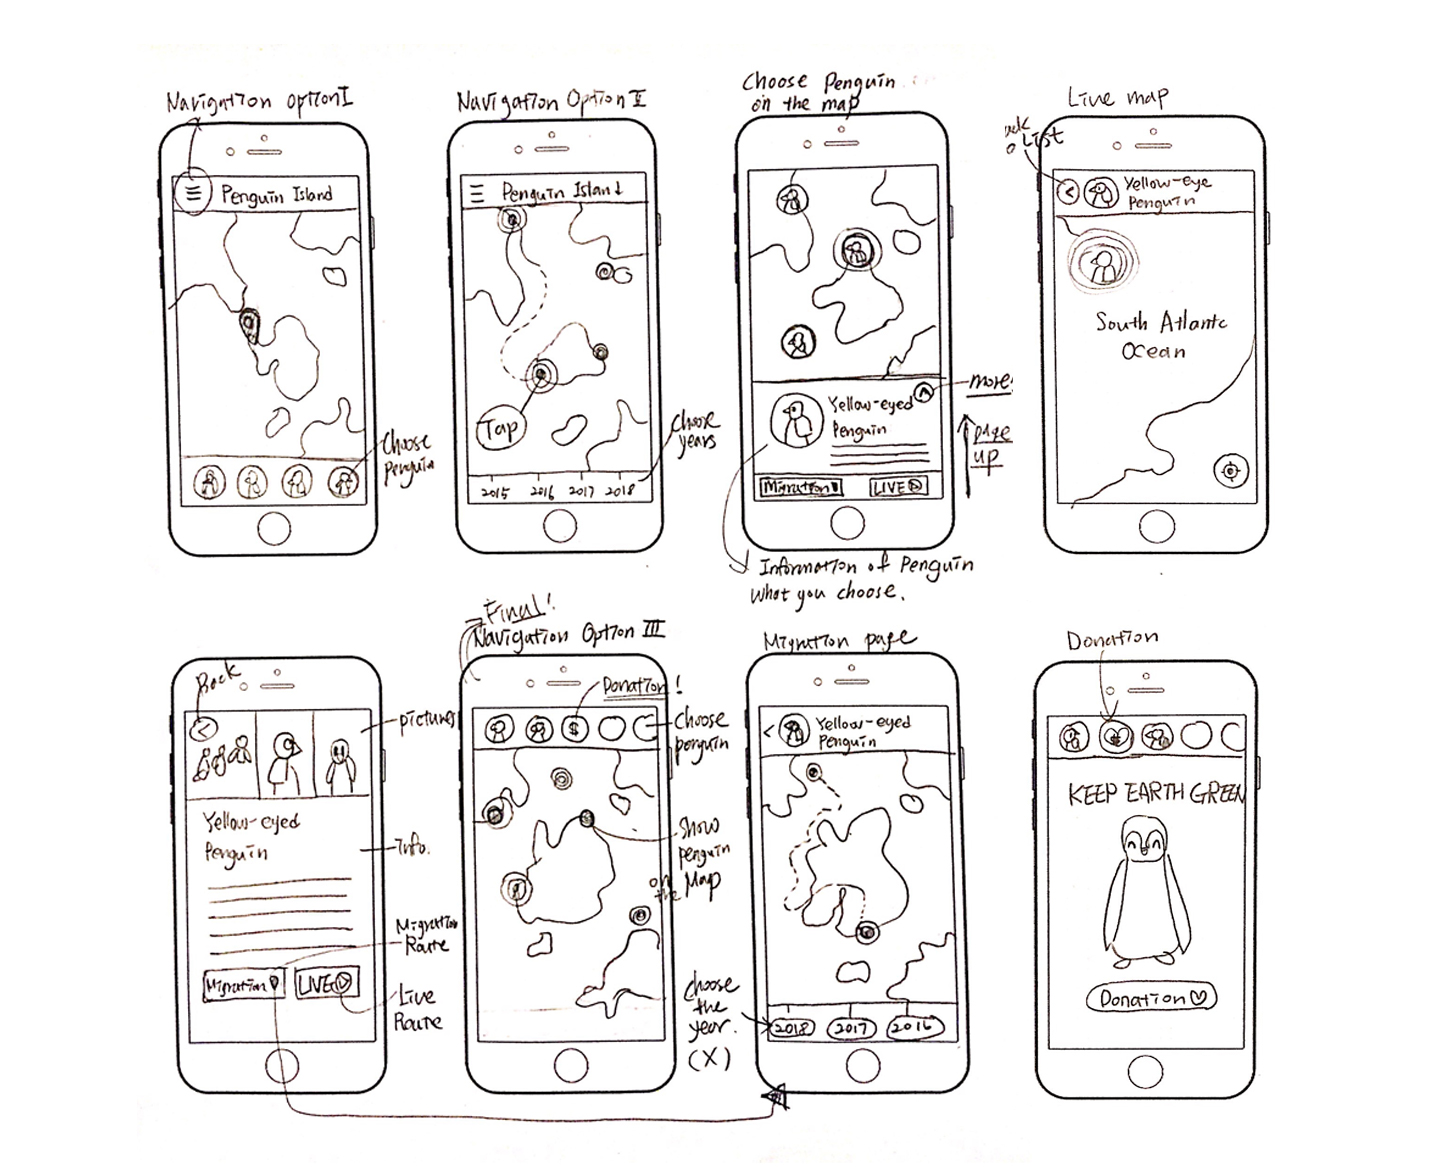 Navigation option I
Penguin Island
Choose
penguin
Navigation Option II
Penguin Island
Tap
Choose
years
2015 2016 2017 2018
Choose Penguin
on the map
more!
Yellow-eyed
Penguin
page
up
Migration
LIVE
Information of Penguin
What you choose.
Live map
List
Yellow-eye
Penguin
South Atlantc
Ocean
Back
pictures
Yellow-eyed
Penguin
info.
Migration
Route
Migration
LIVE
Live
Route
Final!
Navigation Option III
Donation!
$
Choose
penguin
Show
penguin
on the Map
Migration page
Yellow-eyed
Penguin
Choose
the
year.
(X)
2018 2017 2016
Donation
KEEP EARTH GREEN
Donation